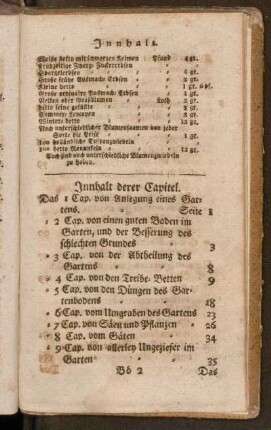 Innhalt.
Welsche detto mit schwartzen Keimen Pfund 4 gr.
Frühzeitige Zwerg-Zuckererbsen 2 gr.
Grosse frühe Ausmach-Erbsen 2 gr.
Kleine detto 1 gr. 6 pf.
Grosse ordinaire Ausmach-Erbsen 1 gr.
Nelken oder Grasblumen Loth 2 gr.
ditto seine gefüllte 8 gr.
Sommer-Levcojen 3 gr.
Winter detto 12 gr.
Noch unterschiedlicher Blumensaamen von jeder
Sorte die Prise 1 gr.
100 detto Ranunkeln 12 gr.
Noch sind auch unterschiedliche Blumenzwiebeln
zu haben.
Innhalt derer Capitel.
Das 1 Cap. von Anlegung eines Gar-
tens. Seite 1
- 2 Cap. von einen guten Boden im
Garten, und der Besserung des
schlechten Grundes 3
- 3 Cap. von der Abtheilung des
Gartens 8
- 4 Cap. von den Treibe-Betten 9
- 5 Cap. von den Düngen des Gar-
tenbodens 18
- 6 Cap. vom Umgraben des Gartens 23
- 7 Cap. von Säen und Pflanzen 26
- 8 Cap. vom Gäten 34
- 9 Cap. von allerley Ungeziefer im
Garten 35
Bb 2 Das